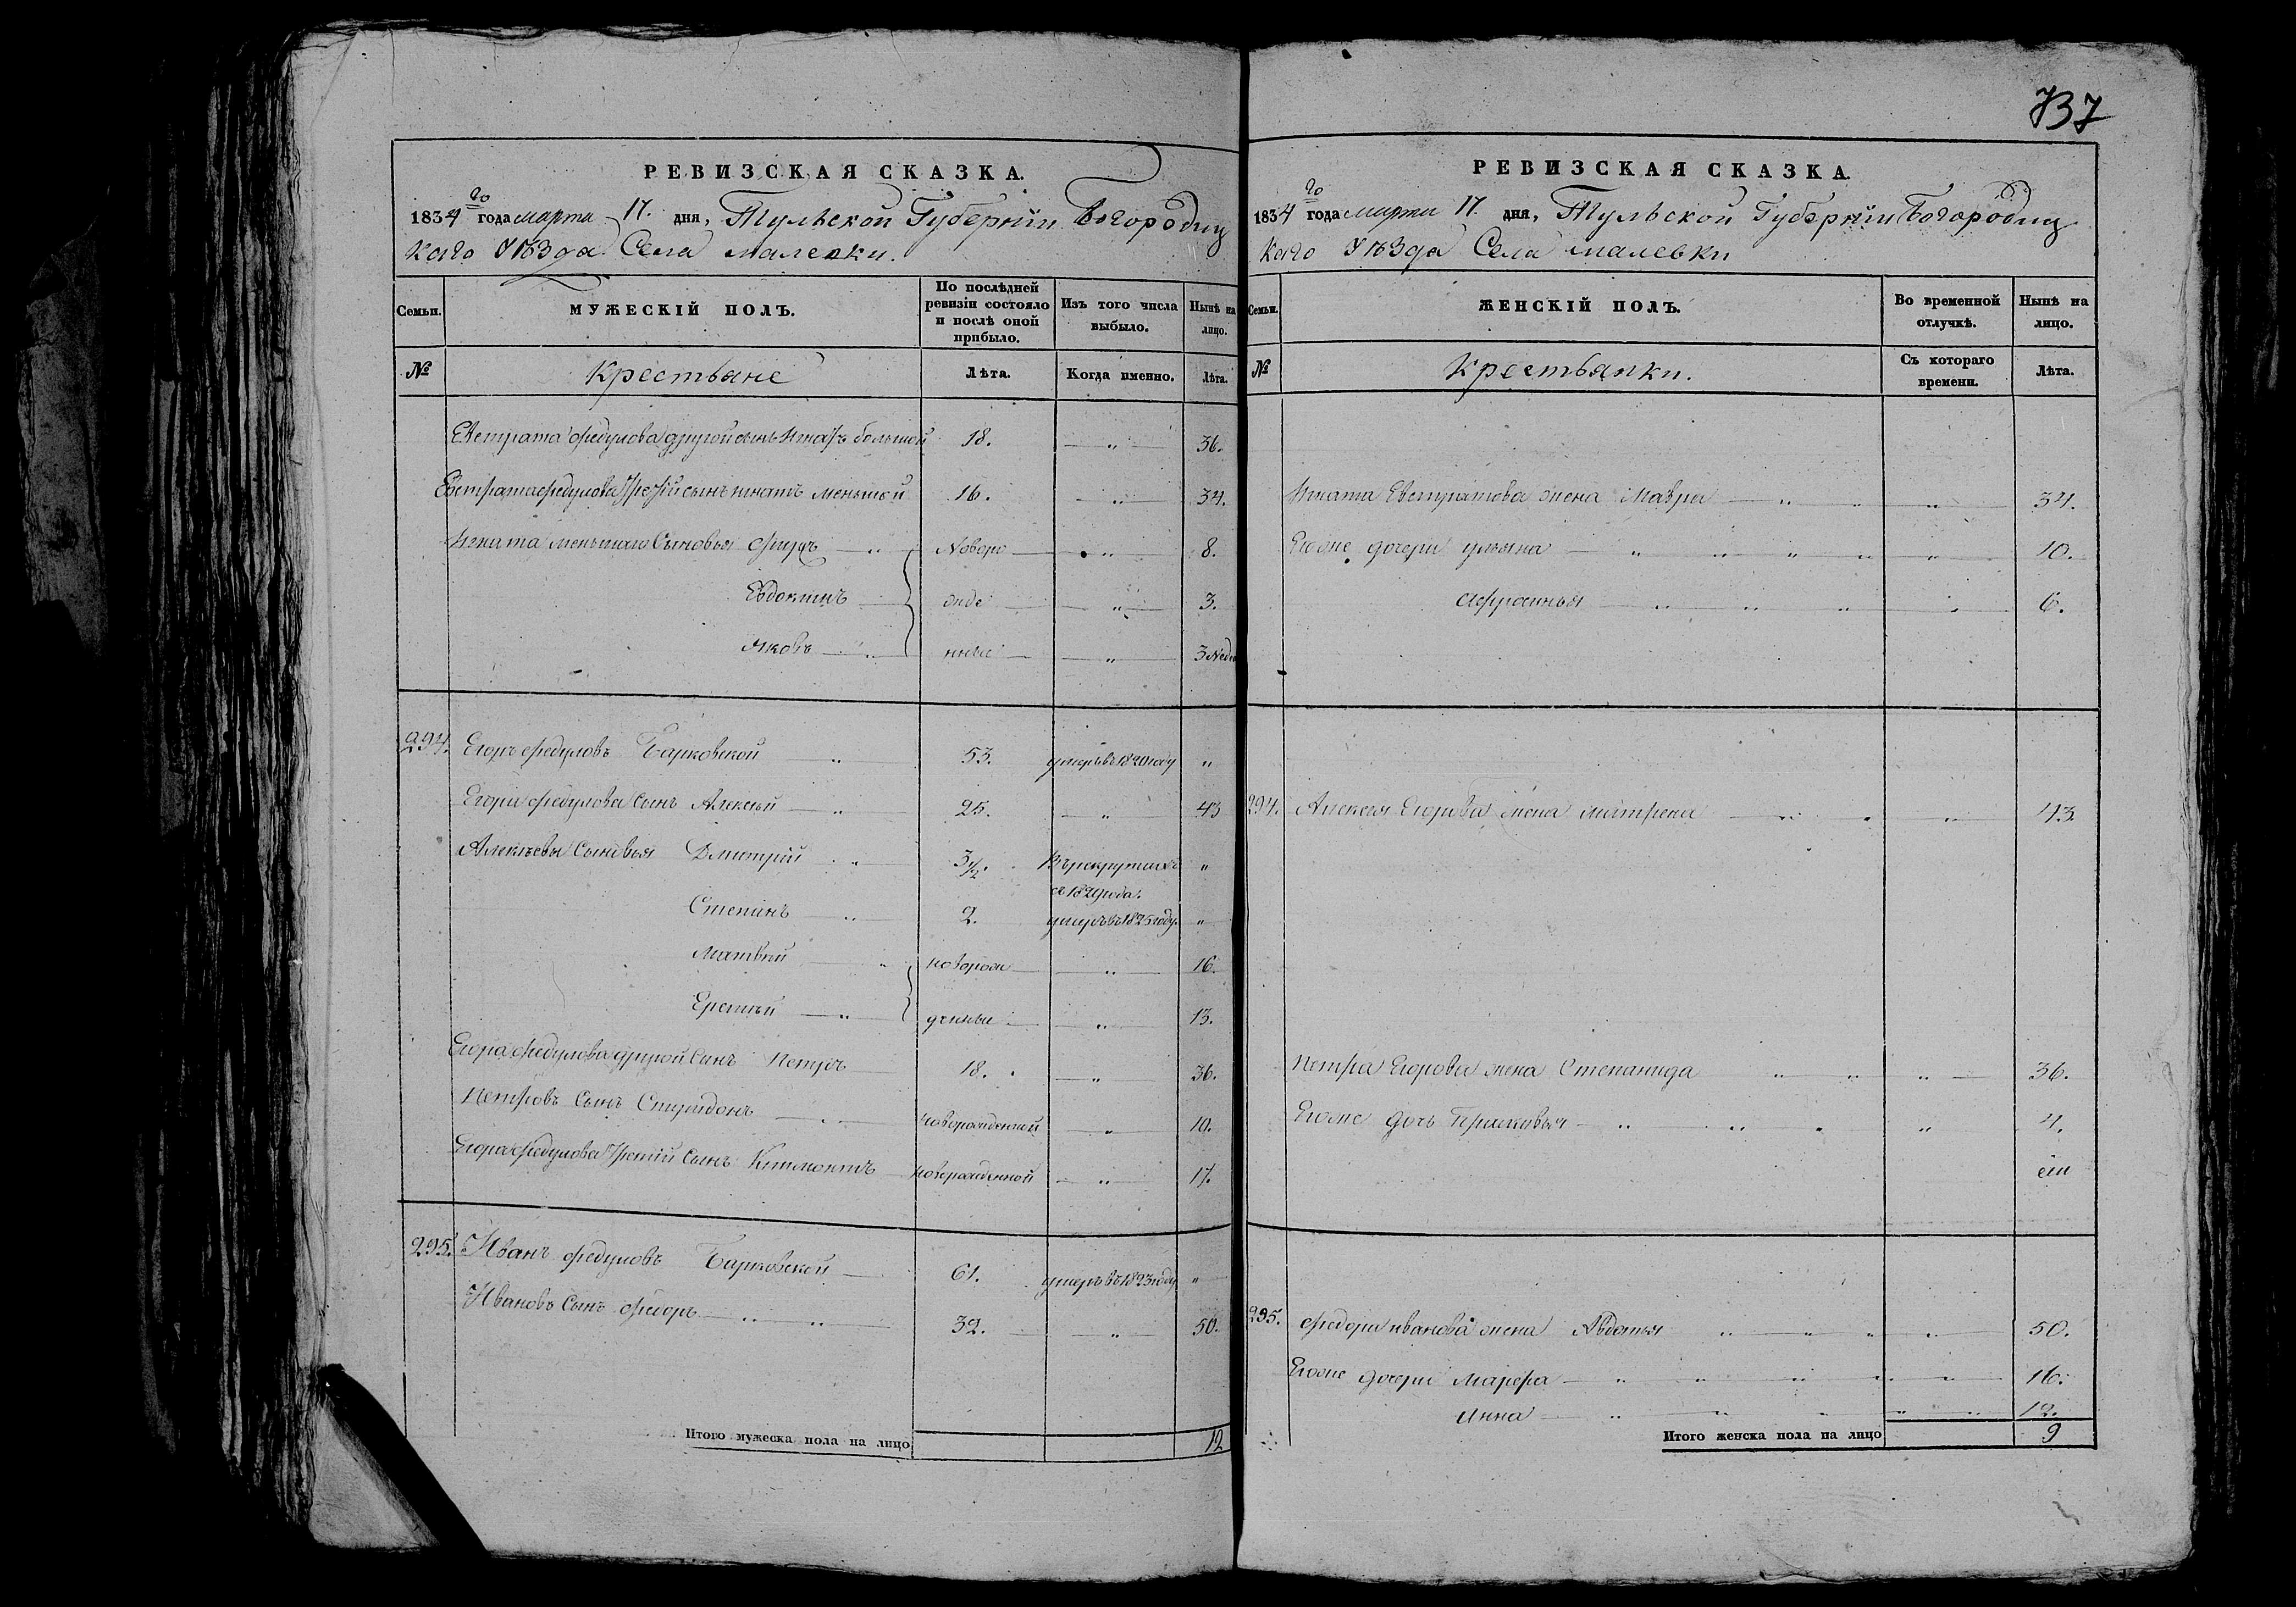 737
РЕВИЗСКАЯ СКАЗКА.
1834 го года марта 17. дня, Тульской Губернiи Богородиц
каго Уѣзда Села малевки.
Семьи.
МУЖЕСКІЙ ПОЛЪ.
По послѣдней ревизіи состояло и послѣ оной прибыло.
Изъ того числа выбыло.
Нынѣ на лицо.
№
Крестьяне
Лѣта.
Когда именно.
Лѣта.
Евстрата Федулова другой сынъ Игнатъ большой 18. „ 36.
Евстрата Федулова третiй сынъ игнатъ меньшой 16. „ 34.
Игната меньшаго Сыновья „ Новоро „ 8.
Евдокимъ „ 3.
Яковъ „ нные „ 3 Неде
294. Егоръ Федуловъ Барковской „ 53. умеръ въ 1820 году „
Егора Федулова Сынъ Алексѣй „ 25. „ 43
Алексѣевы Сыновья Дмитрiй „ 3 1/2. Въ рекрутахъ „
съ 1829 года.
Степанъ „ 2. умеръ въ 1825 году. „
Матвѣй „ новорож „ 16.
Еремѣй „ денные „ 13.
Егора Федулова другой Сынъ Петръ 18. „ 36.
Петровъ Сынъ Спиридонъ новорожденный „ 10.
Егора Федулова третiй Сынъ новорожденной „ 17.
295. Иванъ Федуловъ Барковской 61. умеръ въ 1823 году „
Ивановъ Сынъ Фёдоръ „ „ 32. „ 50.
Итого мужеска пола на лицо 12
РЕВИЗСКАЯ СКАЗКА.
1834 го года марта 17. дня, Тульской Губернiи Богородиц
каго Уѣзда Села малевки
Семьи.
ЖЕНСКІЙ ПОЛЪ.
Во временной отлучкѣ.
Нынѣ на лицо.
№
Крестьянки.
Съ котораго времени.
Лѣта.
Игната Евстратова жена Мавра „ „ „ 34.
Егоже дочери ульяна „ „ „ „ „ 10.
„ „ „ „ 6.
294. Алексея Егорова жена матрена „ „ „ 43
Петра Егорова жена Степанида „ „ „ 36.
Егоже дочь Прасковья „ „ „ „ 4.
295. Федора иванова жена Авдотья „ „ „ „ 50.
Егоже дочери Марфа „ „ „ „ „ 16.
Анна „ „ „ „ „ 12.
Итого женска пола на лицо 9